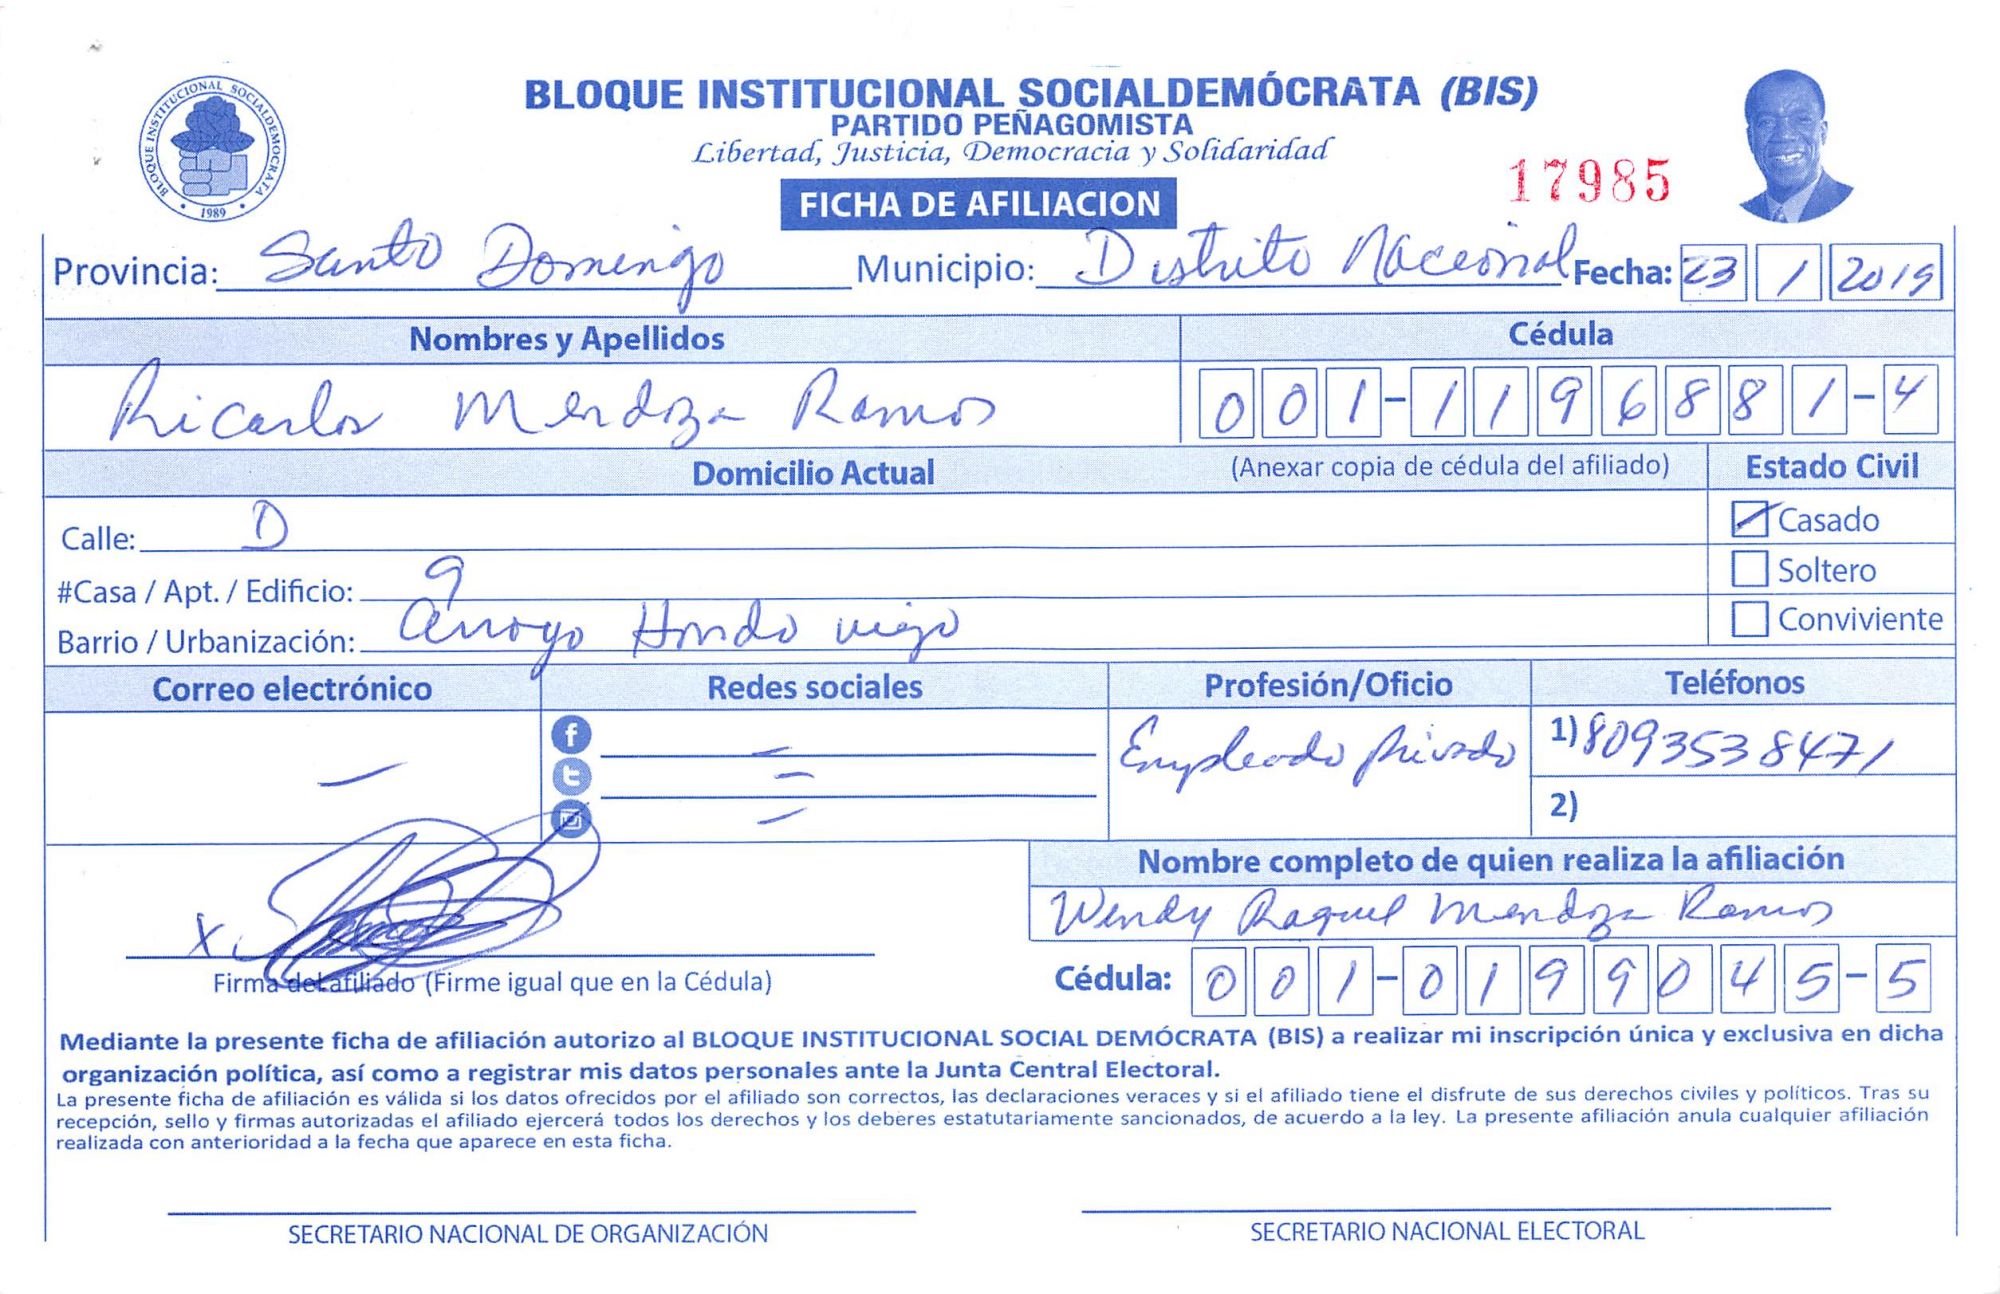 BLOQUE INSTITUCIONAL SOCIALDEMOCRATA
1989
BLOQUE INSTITUCIONAL SOCIALDEMÓCRATA (BIS)
PARTIDO PEÑAGOMISTA
Libertad, Justicia, Democracia y Solidaridad
17985
FICHA DE AFILIACION
Provincia: Santo Domingo Municipio: Distrito Nacional Fecha: 23 / 2019
Nombres y Apellidos Cédula
Ricarlos Mendoza Ramos 001-1196881-4
Domicilio Actual (Anexar copia de cédula del afiliado) Estado Civil
Calle: D Casado
#Casa / Apt. / Edificio: 9 Soltero
Barrio / Urbanización: Arroyo Hondo viejo Conviviente
Correo electrónico Redes sociales Profesión/Oficio Teléfonos
— f — Empleado privado 1) 8093538471
t —
— 2)
Nombre completo de quien realiza la afiliación
Wendy Raquel Mendoza Ramos
X
Firma del afiliado (Firme igual que en la Cédula) Cédula: 001-0199045-5
Mediante la presente ficha de afiliación autorizo al BLOQUE INSTITUCIONAL SOCIAL DEMÓCRATA (BIS) a realizar mi inscripción única y exclusiva en dicha
organización política, así como a registrar mis datos personales ante la Junta Central Electoral.
La presente ficha de afiliación es válida si los datos ofrecidos por el afiliado son correctos, las declaraciones veraces y si el afiliado tiene el disfrute de sus derechos civiles y políticos. Tras su
recepción, sello y firmas autorizadas el afiliado ejercerá todos los derechos y los deberes estatutariamente sancionados, de acuerdo a la ley. La presente afiliación anula cualquier afiliación
realizada con anterioridad a la fecha que aparece en esta ficha.
SECRETARIO NACIONAL DE ORGANIZACIÓN SECRETARIO NACIONAL ELECTORAL